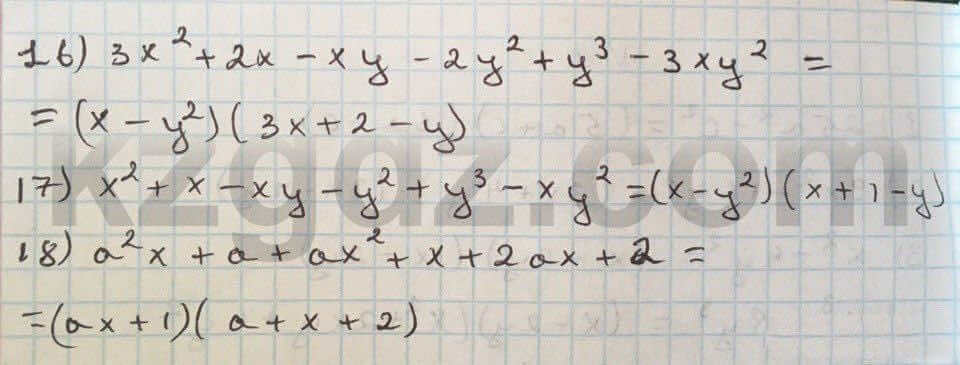 16) 3x² + 2x - xy - 2y² + y³ - 3xy² =
= (x - y²)(3x + 2 - y)
kzgdz.com
17) x² + x - xy - y² + y³ - xy² = (x - y²)(x + 1 - y)
18) a²x + a + ax² + x + 2ax + 2 =
= (ax + 1)(a + x + 2)